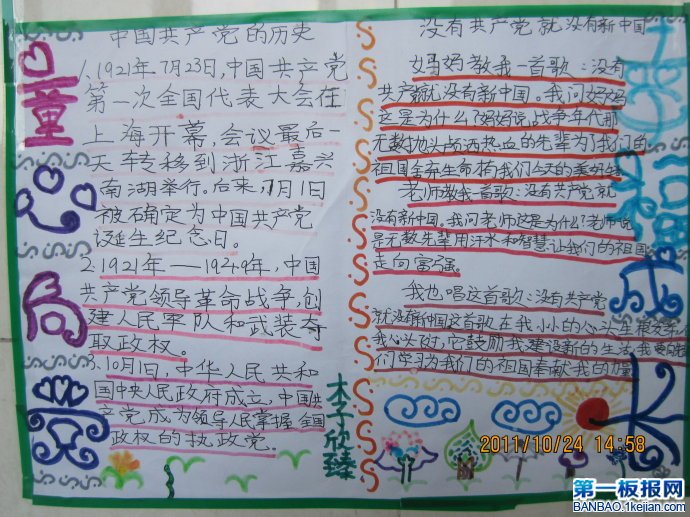 童
心
向
党
中国共产党的历史
1.1921年7月23日,中国共产党
第一次全国代表大会在
上海开幕,会议最后一
天转移到浙江嘉兴
南湖举行。后来,7月1日
被确定为中国共产党
诞生纪念日。
2.1921年——1949年,中国
共产党领导革命战争,创
建人民军队和武装夺
取政权。
3.10月1日,中华人民共和
国中央人民政府成立,中国共
产党,成为领导人民掌握全国
政权的执政党。
木子欣臻
没有共产党就没有新中国
妈妈教我一首歌:没有
共产党就没有新中国。我问妈妈
这是为什么?妈妈说,战争年代那
无数抛头颅洒热血的先辈为了我们的
祖国
老师教我一首歌:没有共产党就
没有新中国。我问老师这是为什么?老师说
是无数先辈用汗水和智慧让我们的祖国
走向富强。
我也唱这首歌:没有共产党
就没有新中国这首歌在我小小的心头生根发芽
我心头
它鼓励我建设新的生活,我要
们学习为我们的祖国奉献我的力量
成
长
2011/10/24 14:58
第一板报网
BANBAO.1kejian.com